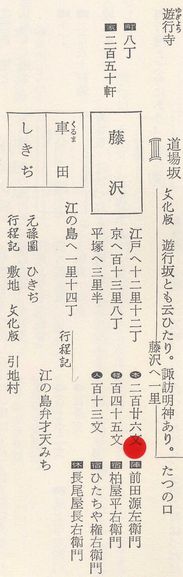 遊行寺
ゆぎょうじ
道場坂
文化版 遊行坂とも云ひたり。諏訪明神あり。
藤沢へ一里
たつの口
町 八丁
家 二百五十軒
藤沢
江戸へ十二里十二丁
京へ百十三里八丁
平塚へ三里半
本 二百廿六文
四百四十五文
人 百十三文
陣 前田源左衛門
宿 柏屋平右衛門
宿 ひたちや権右衛門
休 長尾屋長右衛門
くるま
車田
しきぢ
江の島へ一里十四丁
行程記
江の島弁才天みち
元禄圖 ひきぢ
行程記 敷地 文化版 引地村